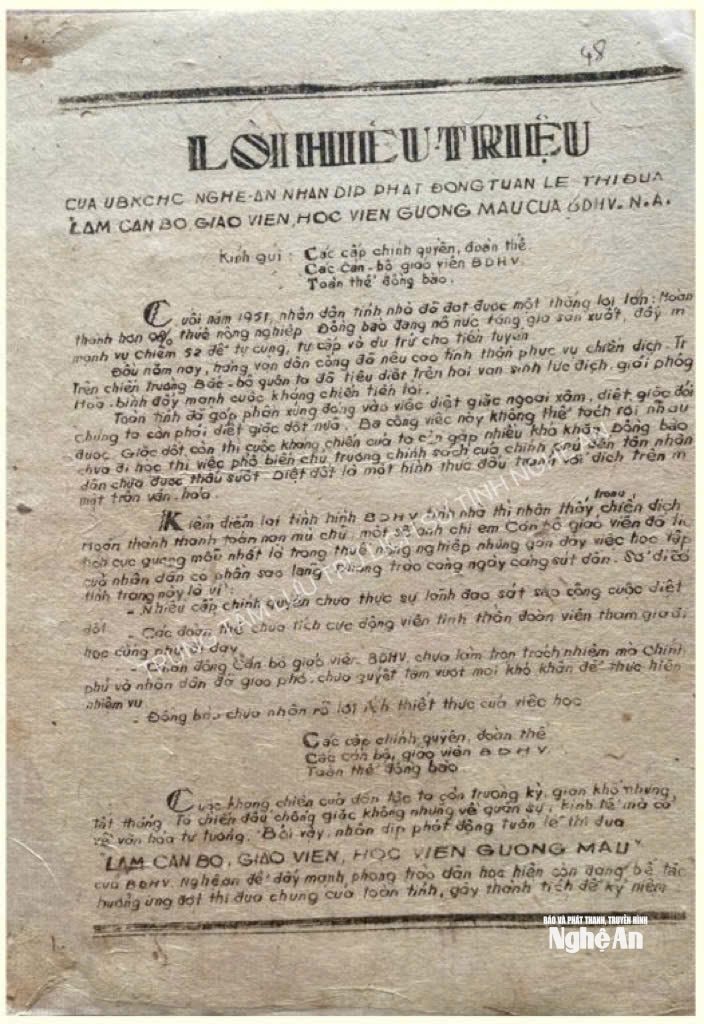 48
LỜI HIỆU TRIỆU
CỦA UBKCHC NGHỆ-AN NHÂN DỊP PHÁT ĐỘNG TUẦN LỄ THI ĐUA
"LÀM CÁN BỘ, GIÁO VIÊN, HỌC VIÊN GƯƠNG MẪU CỦA BDHV. N.A.
Kính gửi : Các cấp chính quyền, đoàn thể
Các Cán-bộ giáo viên BDHV.
Toàn thể đồng bào.
Cuối năm 1951, nhân dân tỉnh nhà đã đạt được một thắng lợi lớn: Hoàn
thành hơn 90% thuế nông nghiệp Đồng bào đang nô nức tăng gia sản xuất, đẩy m
mạnh vụ Chiêm 52 để tự cung, tự cấp và dự trữ cho tiền tuyến
Đầu năm nay, hàng vạn dân công đã nêu cao tinh thần phục vụ chiến dịch. Tr
Trên chiến trường Bắc-bộ quân ta đã tiêu diệt trên hai vạn sinh lực địch, giải phóg
Hoà-bình đẩy mạnh cuộc kháng chiến tiến tới.
Toàn tỉnh đã góp phần xứng đáng vào việc diệt giặc ngoại xâm, diệt giặc đói
chúng ta còn phải diệt giặc dốt nữa. Ba công việc này không thể tách rời nhau
được. Giặc dốt còn thì cuộc kháng chiến của ta còn gặp nhiều khó khăn. Đồng bào
chưa đi học thì việc phổ biến chủ trương chính sách của chính phủ đến tận nhân
dân chưa được thấu suốt. Diệt dốt là một hình thức đấu tranh với địch trên m
mặt trận văn-hóa.
Kiểm điểm lại tình hình BDHV tỉnh nhà thì nhận thấy trong chiến dịch
Hoàn thành thanh toán nạn mù chữ, một số anh chị em Cán bộ giáo viên đã tí
tích cực gương mẫu nhất là trong thuế nông nghiệp nhưng gần đây việc học tập
của nhân dân có phần sao lãng. Phong trào càng ngày càng sút dần. Sở dĩ có
tình trạng này là vì :
- Nhiều cấp chính quyền chưa thực sự lãnh đạo sát sao công cuộc diệt
dốt.
- Các đoàn thể chưa tích cực động viên tinh thần đoàn viên tham gia đi
học cũng như đi dạy.
- Phần đông Cán bộ giáo viên BDHV, chưa làm tròn trách nhiệm mà Chính
phủ và nhân dân đã giao phó, chưa quyết tâm vượt mọi khó khăn để thực hiện
nhiệm vụ
- Đồng bào chưa nhận rõ lợi ích thiết thực của việc học
Các cấp chính quyền, đoàn thể
Các cán bộ, giáo viên BDHV.
Toàn thể đồng bào
Cuộc kháng chiến của dân tộc ta còn trường kỳ, gian khổ nhưng
tất thắng. Ta chiến đấu chống giặc không những về quân sự, kinh tế mà cả
về văn hóa tư tưởng. Bởi vậy, nhân dịp phát động tuần lễ thi đua
"LÀM CÁN BỘ, GIÁO VIÊN, HỌC VIÊN GƯƠNG MẪU"
của BDHV. Nghệ an để đẩy mạnh, phong trào dân học hiện còn đang bế tắc
hưởng ứng đợt thi đua chung của toàn tỉnh, gây thành tích để kỷ niệm
BÁO VÀ PHÁT THANH, TRUYỀN HÌNH
Nghệ An